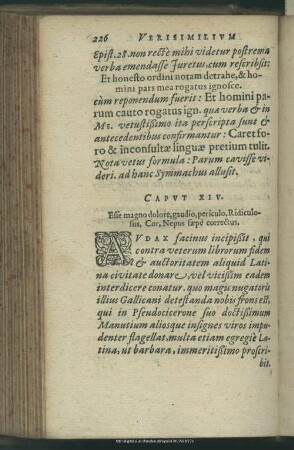 226 VERISIMILIVM
Epist. 28. non recte mihi videtur postrema
verba emendasse Iuretus, cum rescribsit:
Et honesto ordini notam detrahe, & ho-
mini pars mea rogatus ignosce.
cùm reponendum fuerit: Et homini pa-
rum cauto rogatus ign. qua verba & in
Ms. vetustissimo ita perscripta sunt &
antecedentibus confirmantur: Caret fo-
ro & inconsultæ linguæ pretium tulit.
Nota vetus formula: Parum cavisse vi-
deri. ad hanc Symmachus allusit.
CAPVT XIV.
Esse magno dolore, gaudio, periculo, Ridiculo-
sus, Cor, Nepus sæpè correctus.
AVDAX facinus incipissit, qui
contra veterum librorum fidem
& auctoritatem aliquid Lati-
na civitate donare, vel vicissim eadem
interdicere conatur. quo magis nugatoris
illius Gallicani detestanda nobis frons est,
qui in Pseudocicerone suo doctissimum
Manutium aliosque insignes viros impu-
denter flagellat. multa etiam egregiè La-
tina, ut barbara, immeritissimo proscri-
bit.